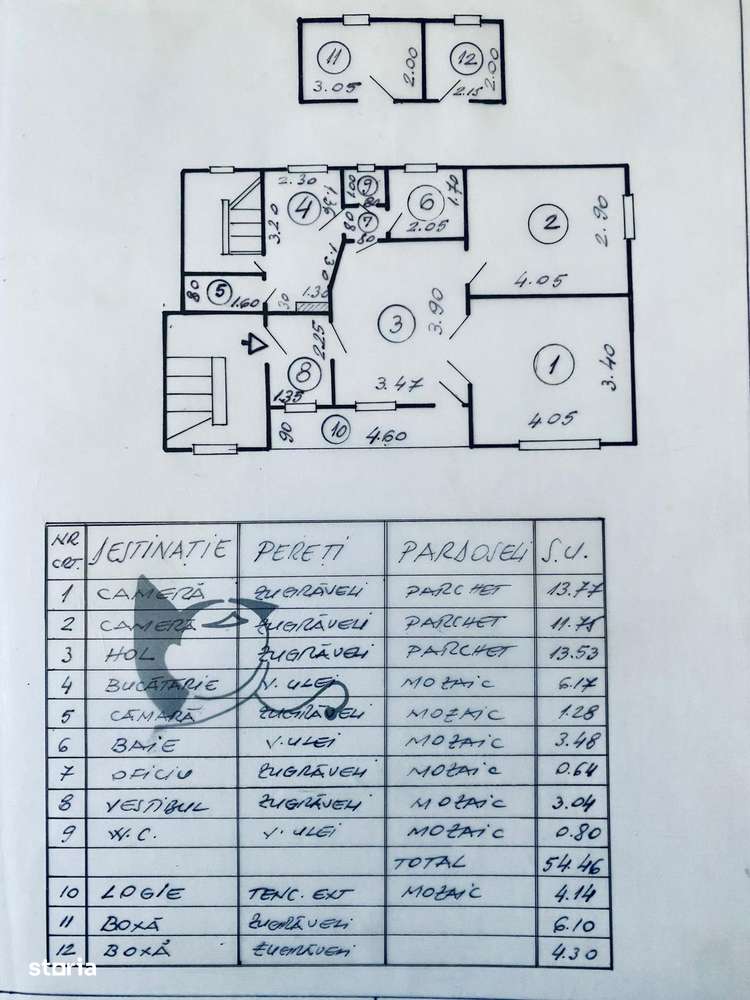 11
3.05
2.00
12
2.15
2.00
2.30
4
1.36
3.20
1.30
30
1.30
9
1.00
80
7
80
80
6
1.70
2.05
2
2.90
4.05
5
80
1.60
3
3.90
3.47
1
3.40
4.05
8
2.25
1.35
90
10
4.60
NR CRT. DESTINAȚIE PEREȚI PARDOSELI S.U.
1 CAMERĂ ZUGRĂVELI PARCHET 13.77
2 CAMERĂ ZUGRĂVELI PARCHET 11.75
3 HOL ZUGRĂVELI PARCHET 13.53
4 BUCĂTĂRIE V. ULEI MOZAIC 6.17
5 CĂMARĂ ZUGRĂVELI MOZAIC 1.28
6 BAIE V. ULEI MOZAIC 3.48
7 OFICIU ZUGRĂVELI MOZAIC 0.64
8 VESTIBUL ZUGRĂVELI MOZAIC 3.04
9 W.C. V. ULEI MOZAIC 0.80
TOTAL 54.46
10 LOGIE TENC. EXT MOZAIC 4.14
11 BOXĂ ZUGRĂVELI 6.10
12 BOXĂ ZUGRĂVELI 4.30
storia